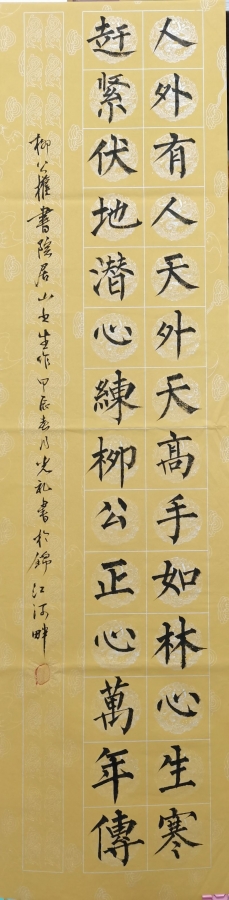 人外有人天外天高手如林心生寒
赶紧伏地潜心練柳公正心萬年傳
柳公權書隐居山士生作甲辰春月光礼書於錦江河畔